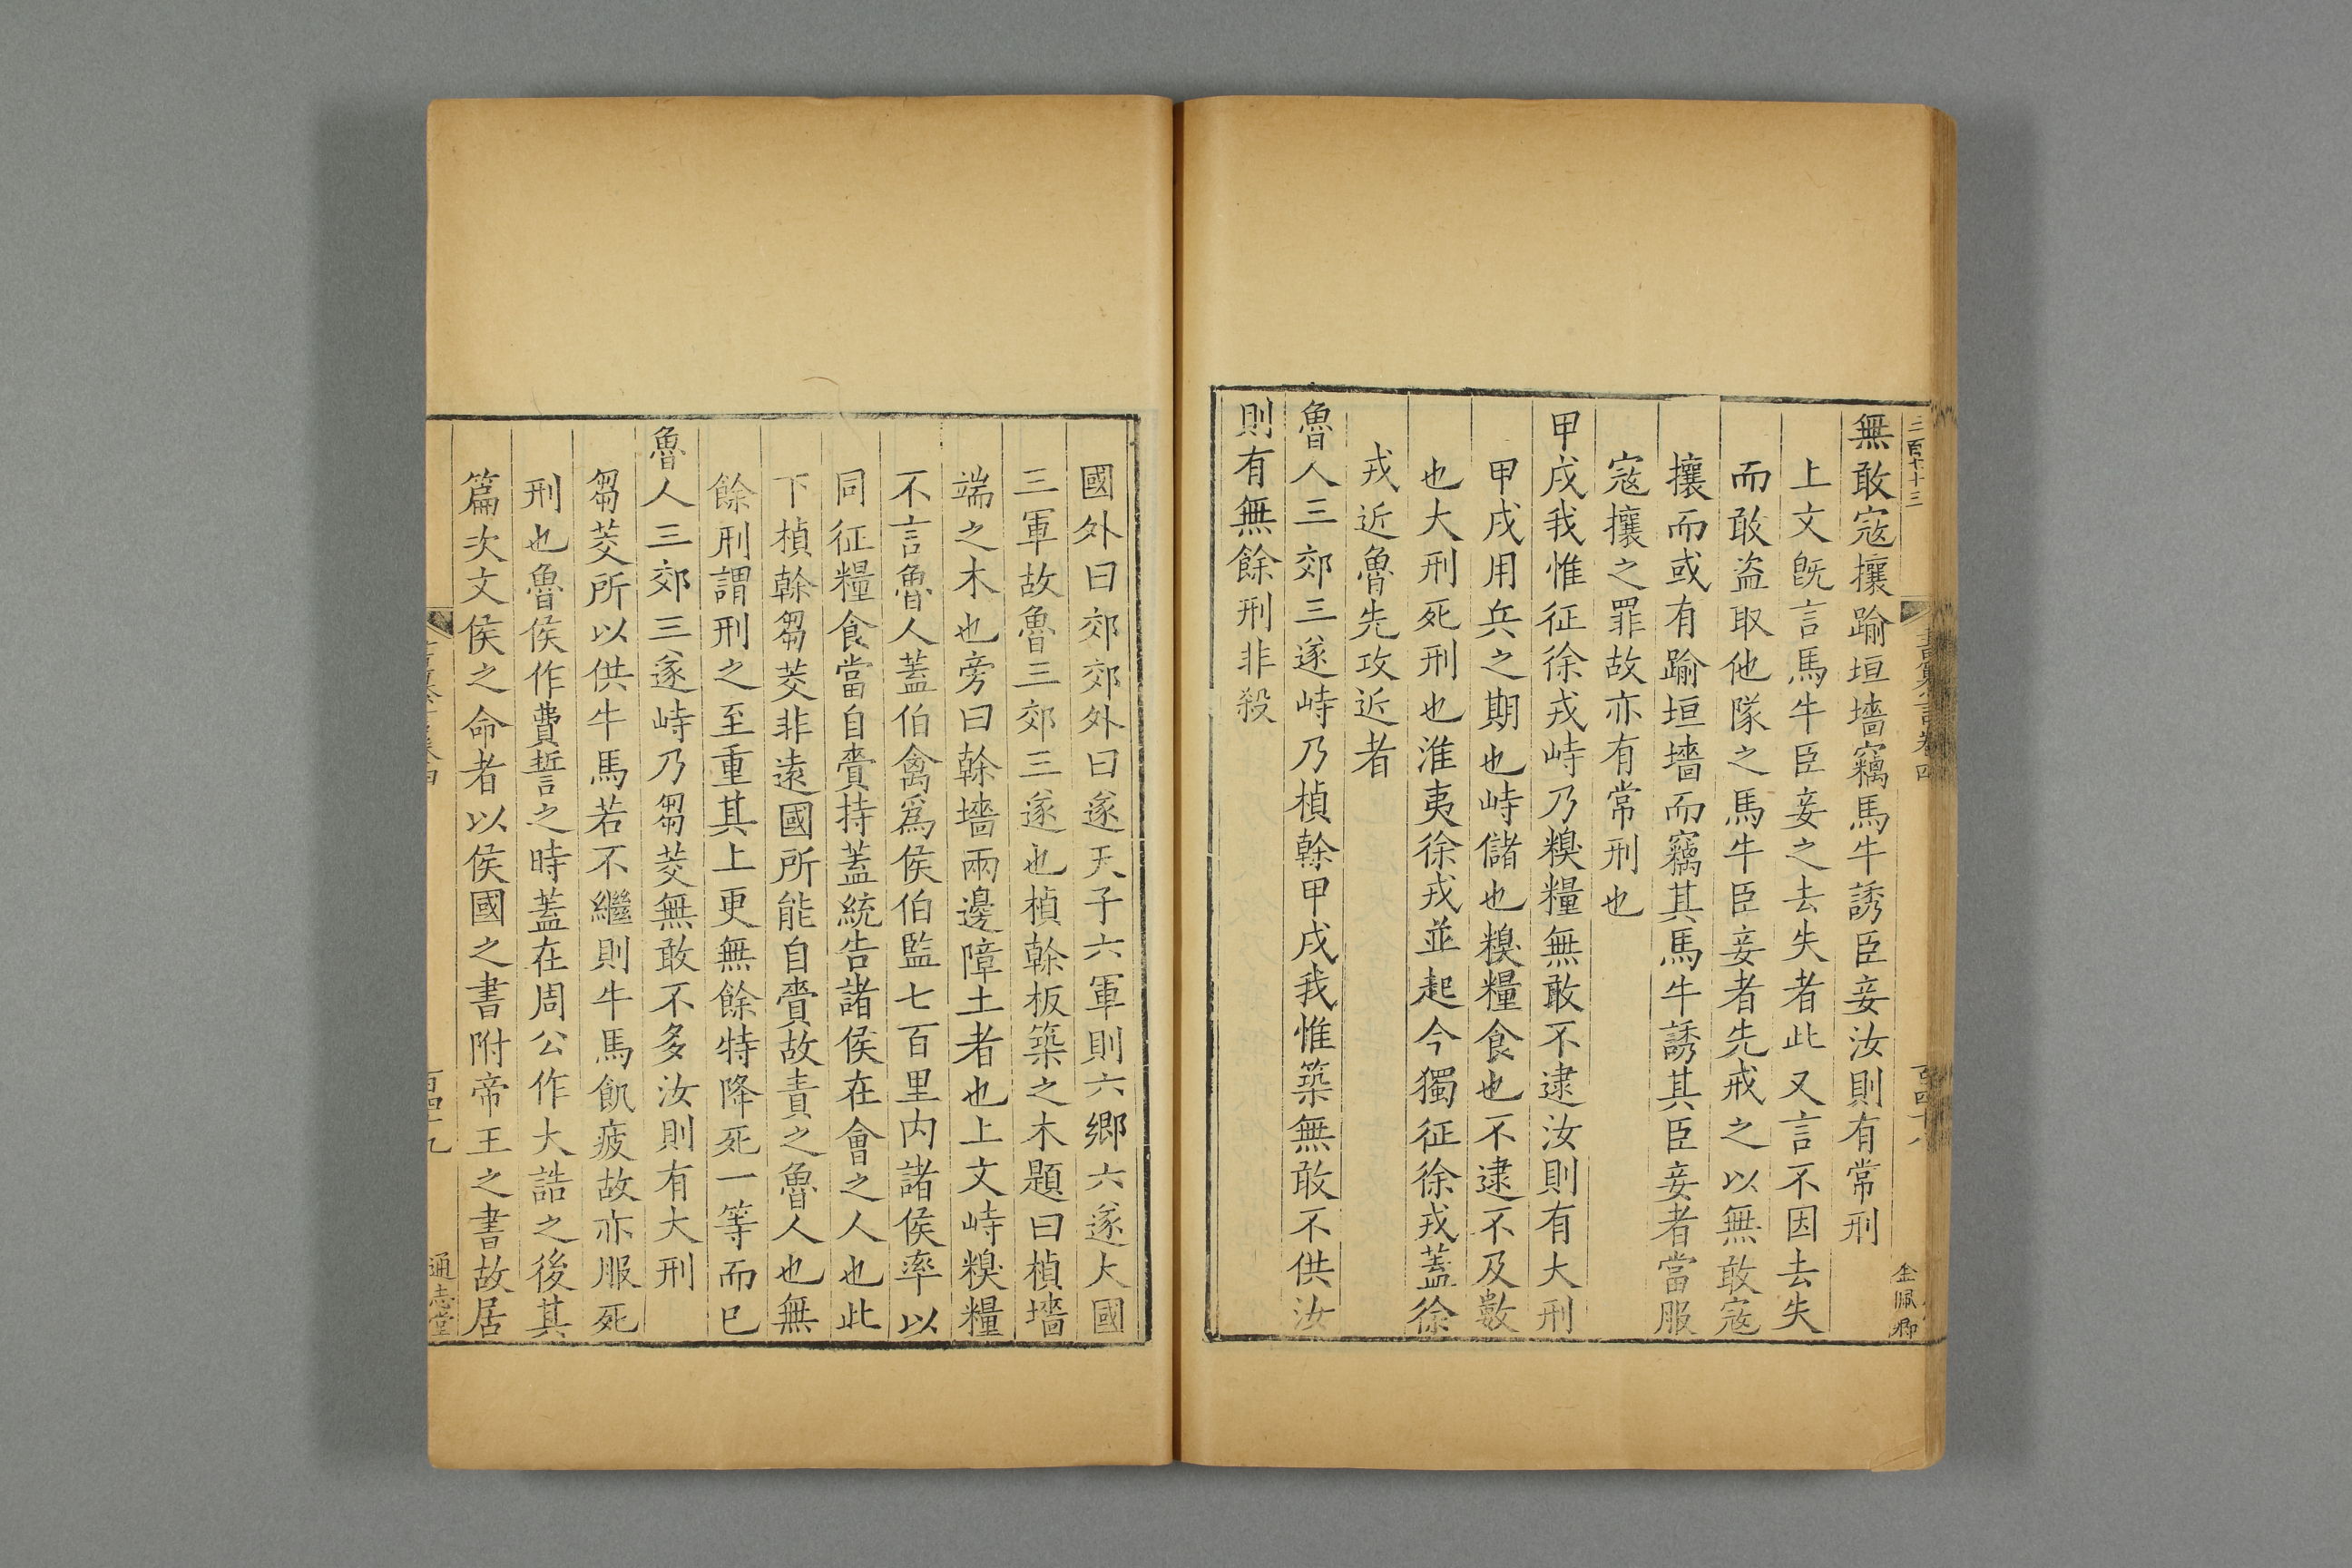 無敢寇攘踰垣墻竊馬牛誘臣妾汝則有常刑
上文旣言馬牛臣妾之去失者此又言不因去失
而敢盜取他隊之馬牛臣妾者先戒之以無敢寇
攘而或有踰垣墻而竊其馬牛誘其臣妾者當服
寇攘之罪故亦有常刑也
甲戌我惟征徐戎峙乃糗糧無敢不逮汝則有大刑
甲戌用兵之期也峙儲也糗糧食也不逮不及數
也大刑死刑也淮夷徐戎並起今獨征徐戎蓋徐
戎近魯先攻近者
魯人三郊三遂峙乃楨榦甲戌我惟築無敢不供汝
則有無餘刑非殺
國外曰郊郊外曰遂天子六軍則六鄉六遂大國
三軍故魯三郊三遂也楨榦板築之木題曰楨墻
端之木也旁曰榦墻兩邊障土者也上文峙糗糧
不言魯人蓋伯禽爲侯伯監七百里内諸侯率以
同征糧食當自賫持蓋統告諸侯在會之人也此
下楨榦芻茭非遠國所能自賫故責之魯人也無
餘刑謂刑之至重其上更無餘特降死一等而已
魯人三郊三遂峙乃芻茭無敢不多汝則有大刑
芻茭所以供牛馬若不繼則牛馬飢疲故亦服死
刑也魯侯作費誓之時蓋在周公作大誥之後其
篇次文侯之命者以侯國之書附帝王之書故居
通志堂
金佩卿